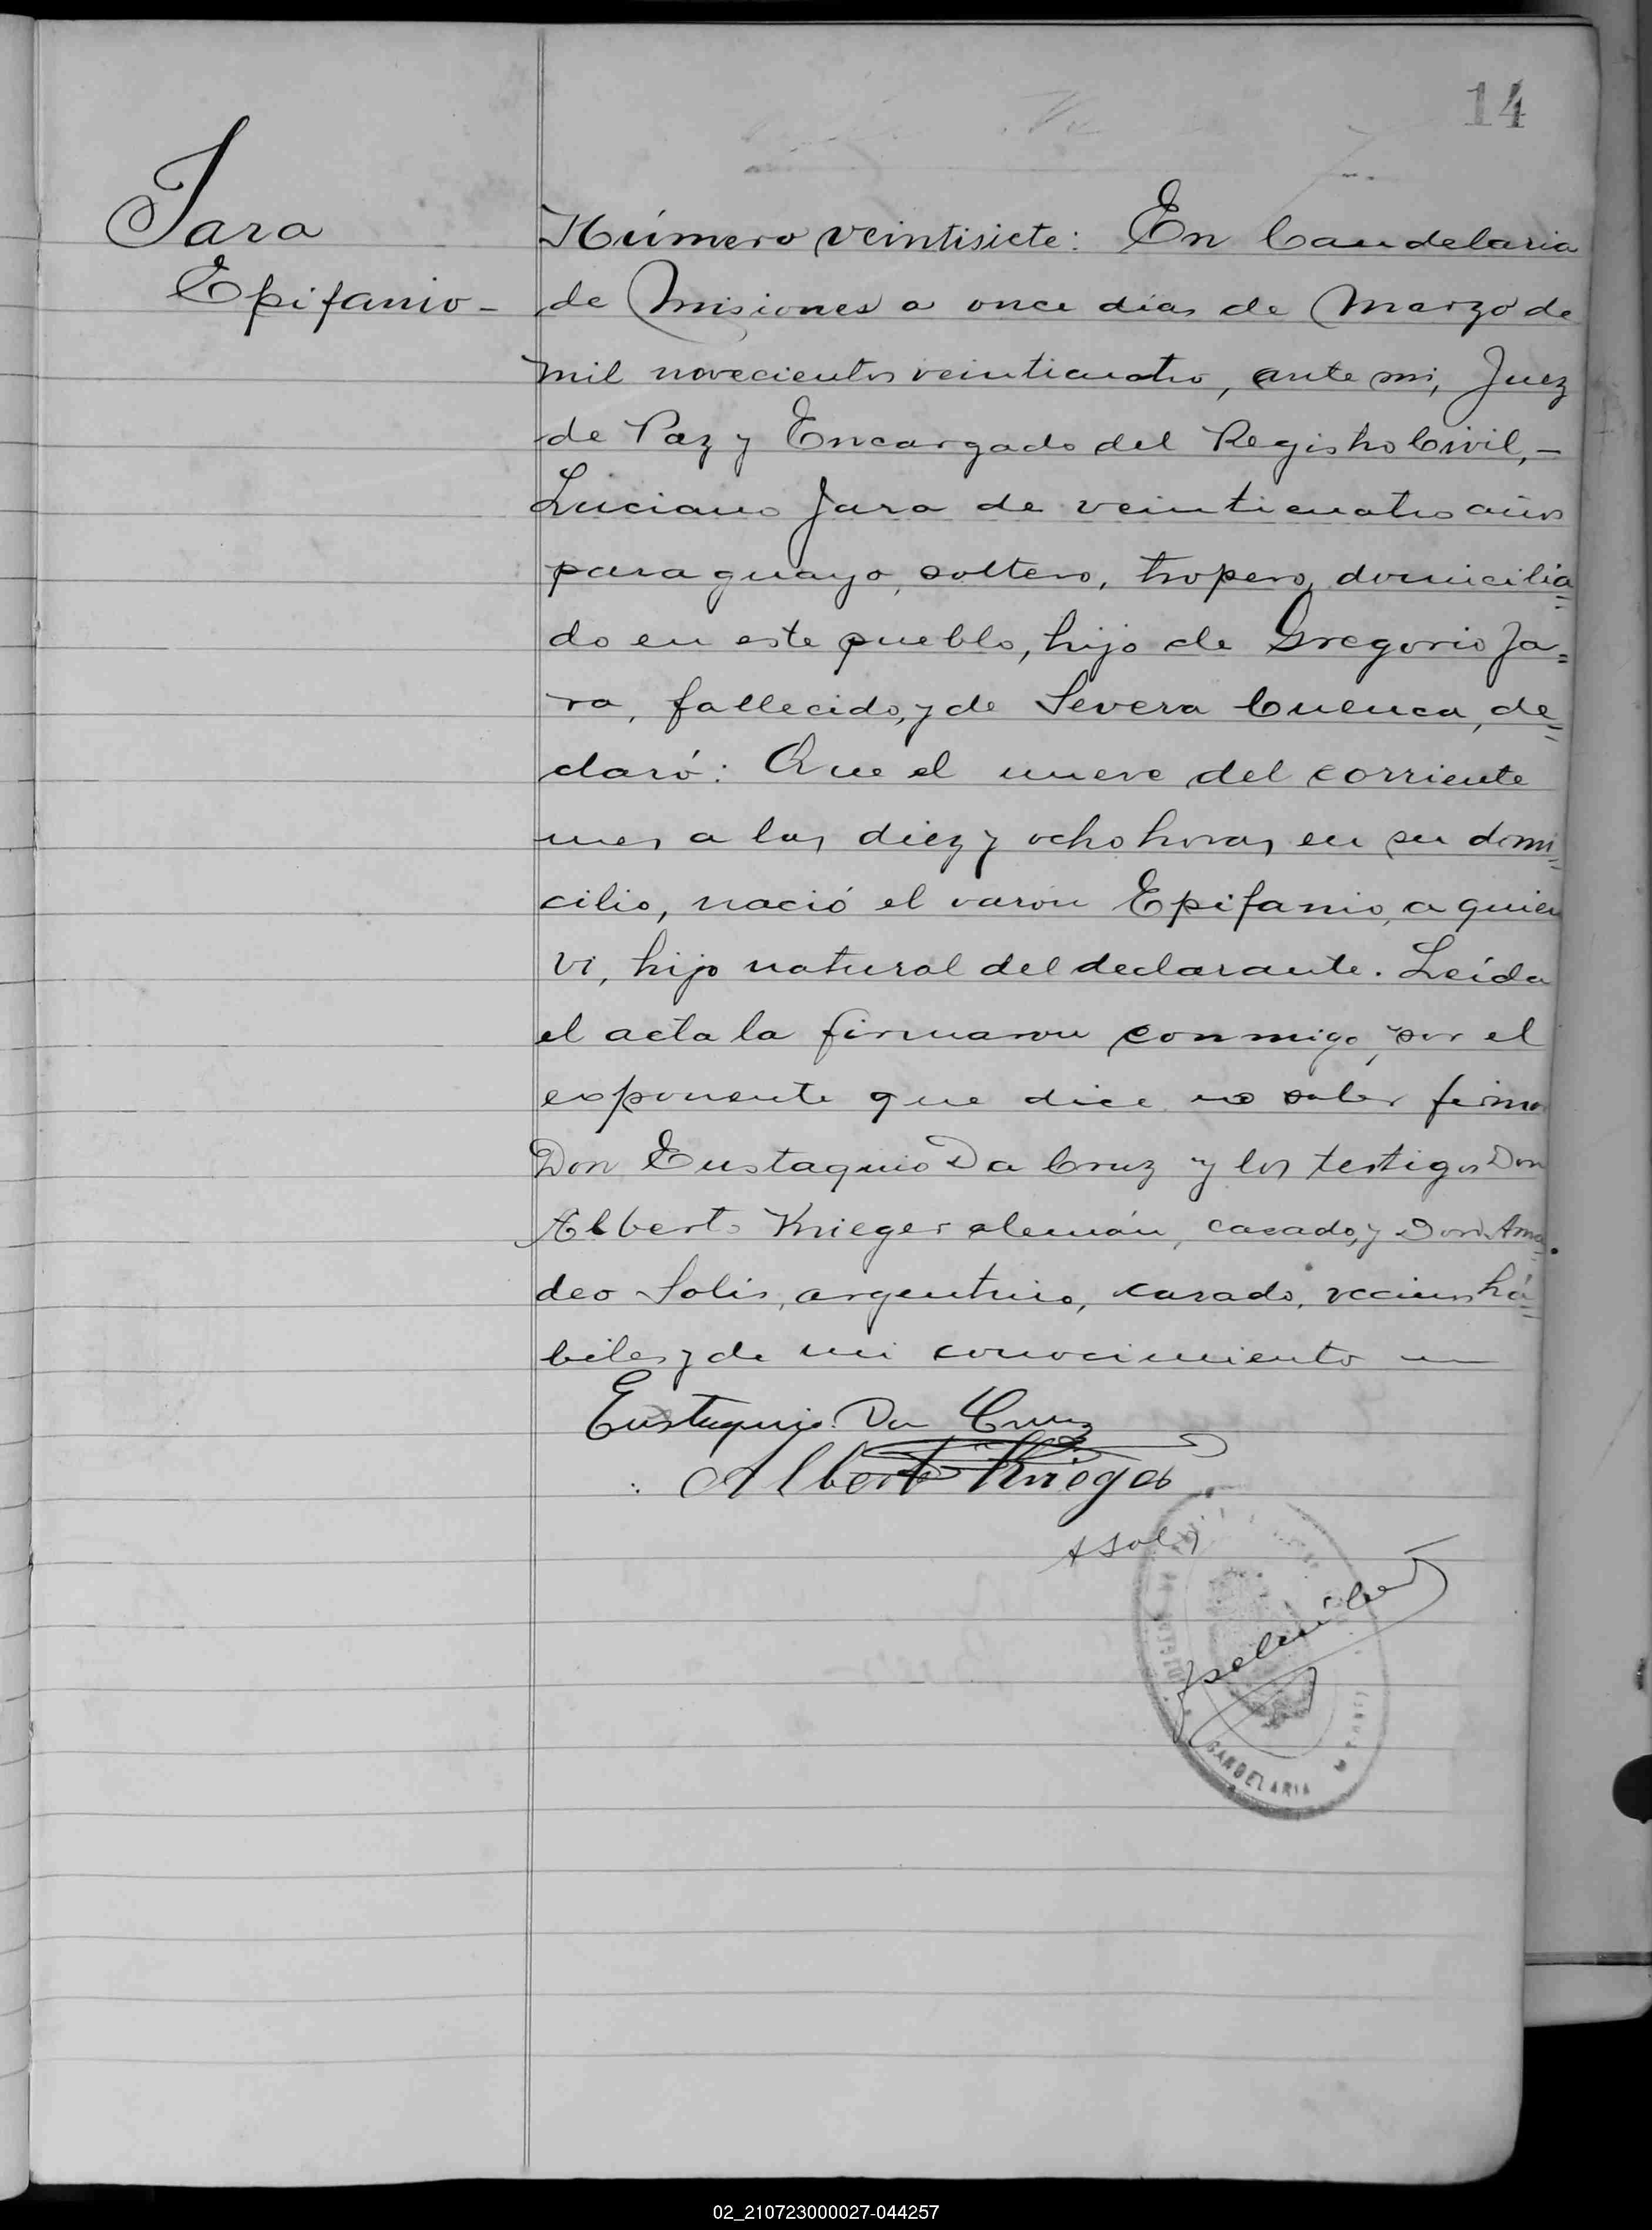 14
Jara
Epifanio -
Número veintisiete: En Candelaria
de Misiones a once dias de Marzo de
mil novecientos veinticuatro, ante mi, Juez
de Paz y Encargado del Registro Civil, -
Luciano Jara de veinticuatro años
paraguayo, soltero, tropero, domicilia=
do en este pueblo, hijo de Gregorio Ja=
ra, fallecido, y de Severa Cuenca, de=
claró: Que el nueve del corriente
mes a las diez y ocho horas en su domi=
cilio, nació el varon Epifanio, a quien
vi, hijo natural del declarante. Leída
el acta la firmaron conmigo, por el
exponente que dice no saber firmar
Don Eustaquio Da Cruz y los testigos Don
Alberto Krieger aleman, casado, y Don Ama=
deo Solis, argentino, casado, vecinos há=
biles y de mi conocimiento
Eustaquio Da Cruz
Alberto Krieger
A Solis
CANDELARIA
02_210723000027-044257